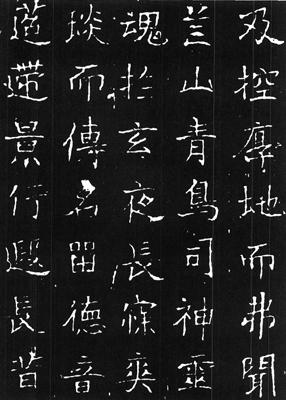 及控厚地而弗聞
兰山青鳥司神靈
魂於玄夜長寐爽
琰而傳名留德音
遰景行遐長昔